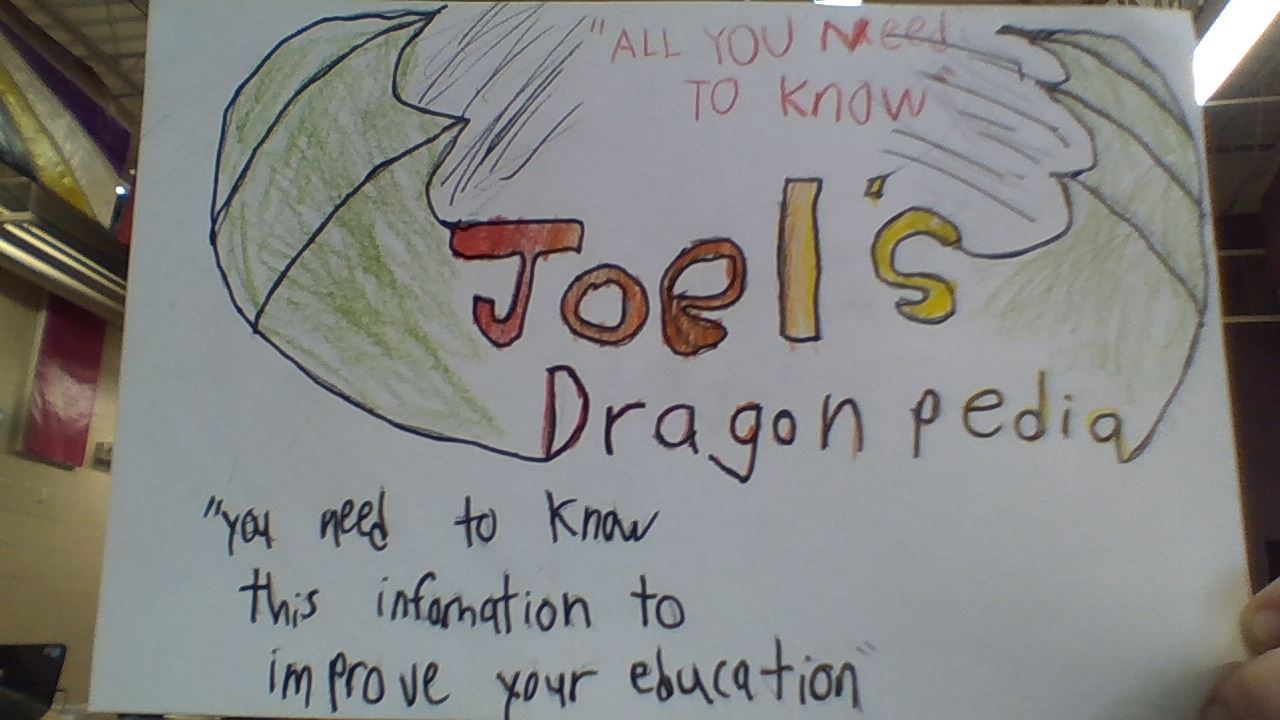 "ALL YOU Need
TO Know"
Joel's
Dragon pedia
"you need to know
this infomation to
improve your education"